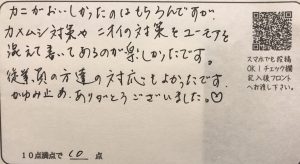 カニがおいしかったのはもちろんですが、
カメムシ対策やニオイの対策をユーモアを
混じえて書いてあるのが楽しかったです。
従業員の方達の対応もよかったです。
かゆみ止め、ありがとうございました。♡
10点満点で 10 点
スマホでも投稿
OK！チェック欄
記入後フロント
へお渡し下さい。